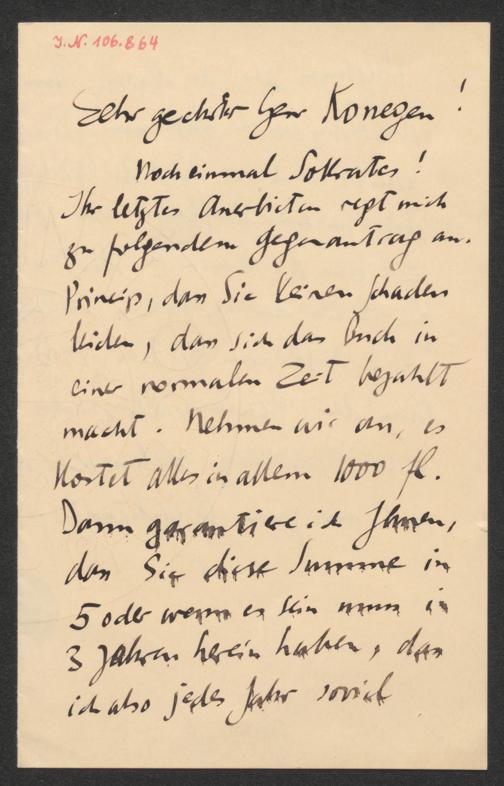 J.N. 106.864
Sehr geehrter Herr Konegen!
Noch einmal Sokrates!
Ihr letztes Anerbieten regt mich
zu folgendem Gegenantrag an.
Princip, dass Sie keinen Schaden
leiden, dass sich das Buch in
einer normalen Zeit bezahlt
macht. Nehmen wir an, es
Kostet alles in allem 1000 fl.
Dann garantiere ich Ihnen,
dass Sie diese Summe in
5 oder wenn es sein muss in
3 Jahren herein haben, dass
ich also jedes Jahr soviel